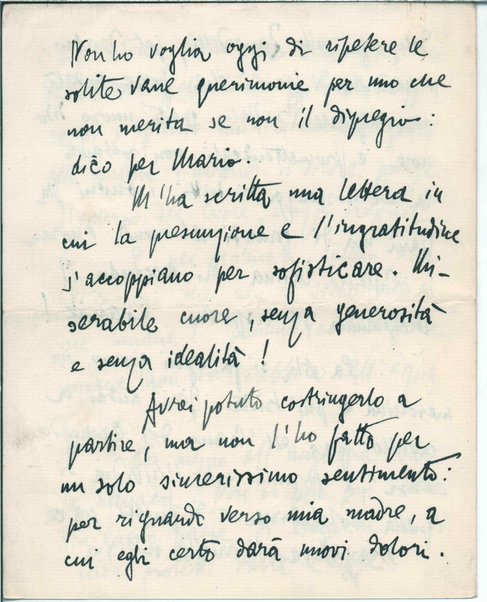 Non ho voglia oggi di ripetere le
solite vane querimonie per uno che
non merita se non il dispregio:
dico per Mario.
M'ha scritta una lettera in
cui la presunzione e l'ingratitudine
s'accoppiano per sofisticare. Mi-
serabile cuore, senza generosità
e senza idealità!
Avrei potuto costringerlo a
partire, ma non l'ho fatto per
un solo sincerissimo sentimento:
per riguardo verso mia madre, a
cui egli certo darà nuovi dolori.